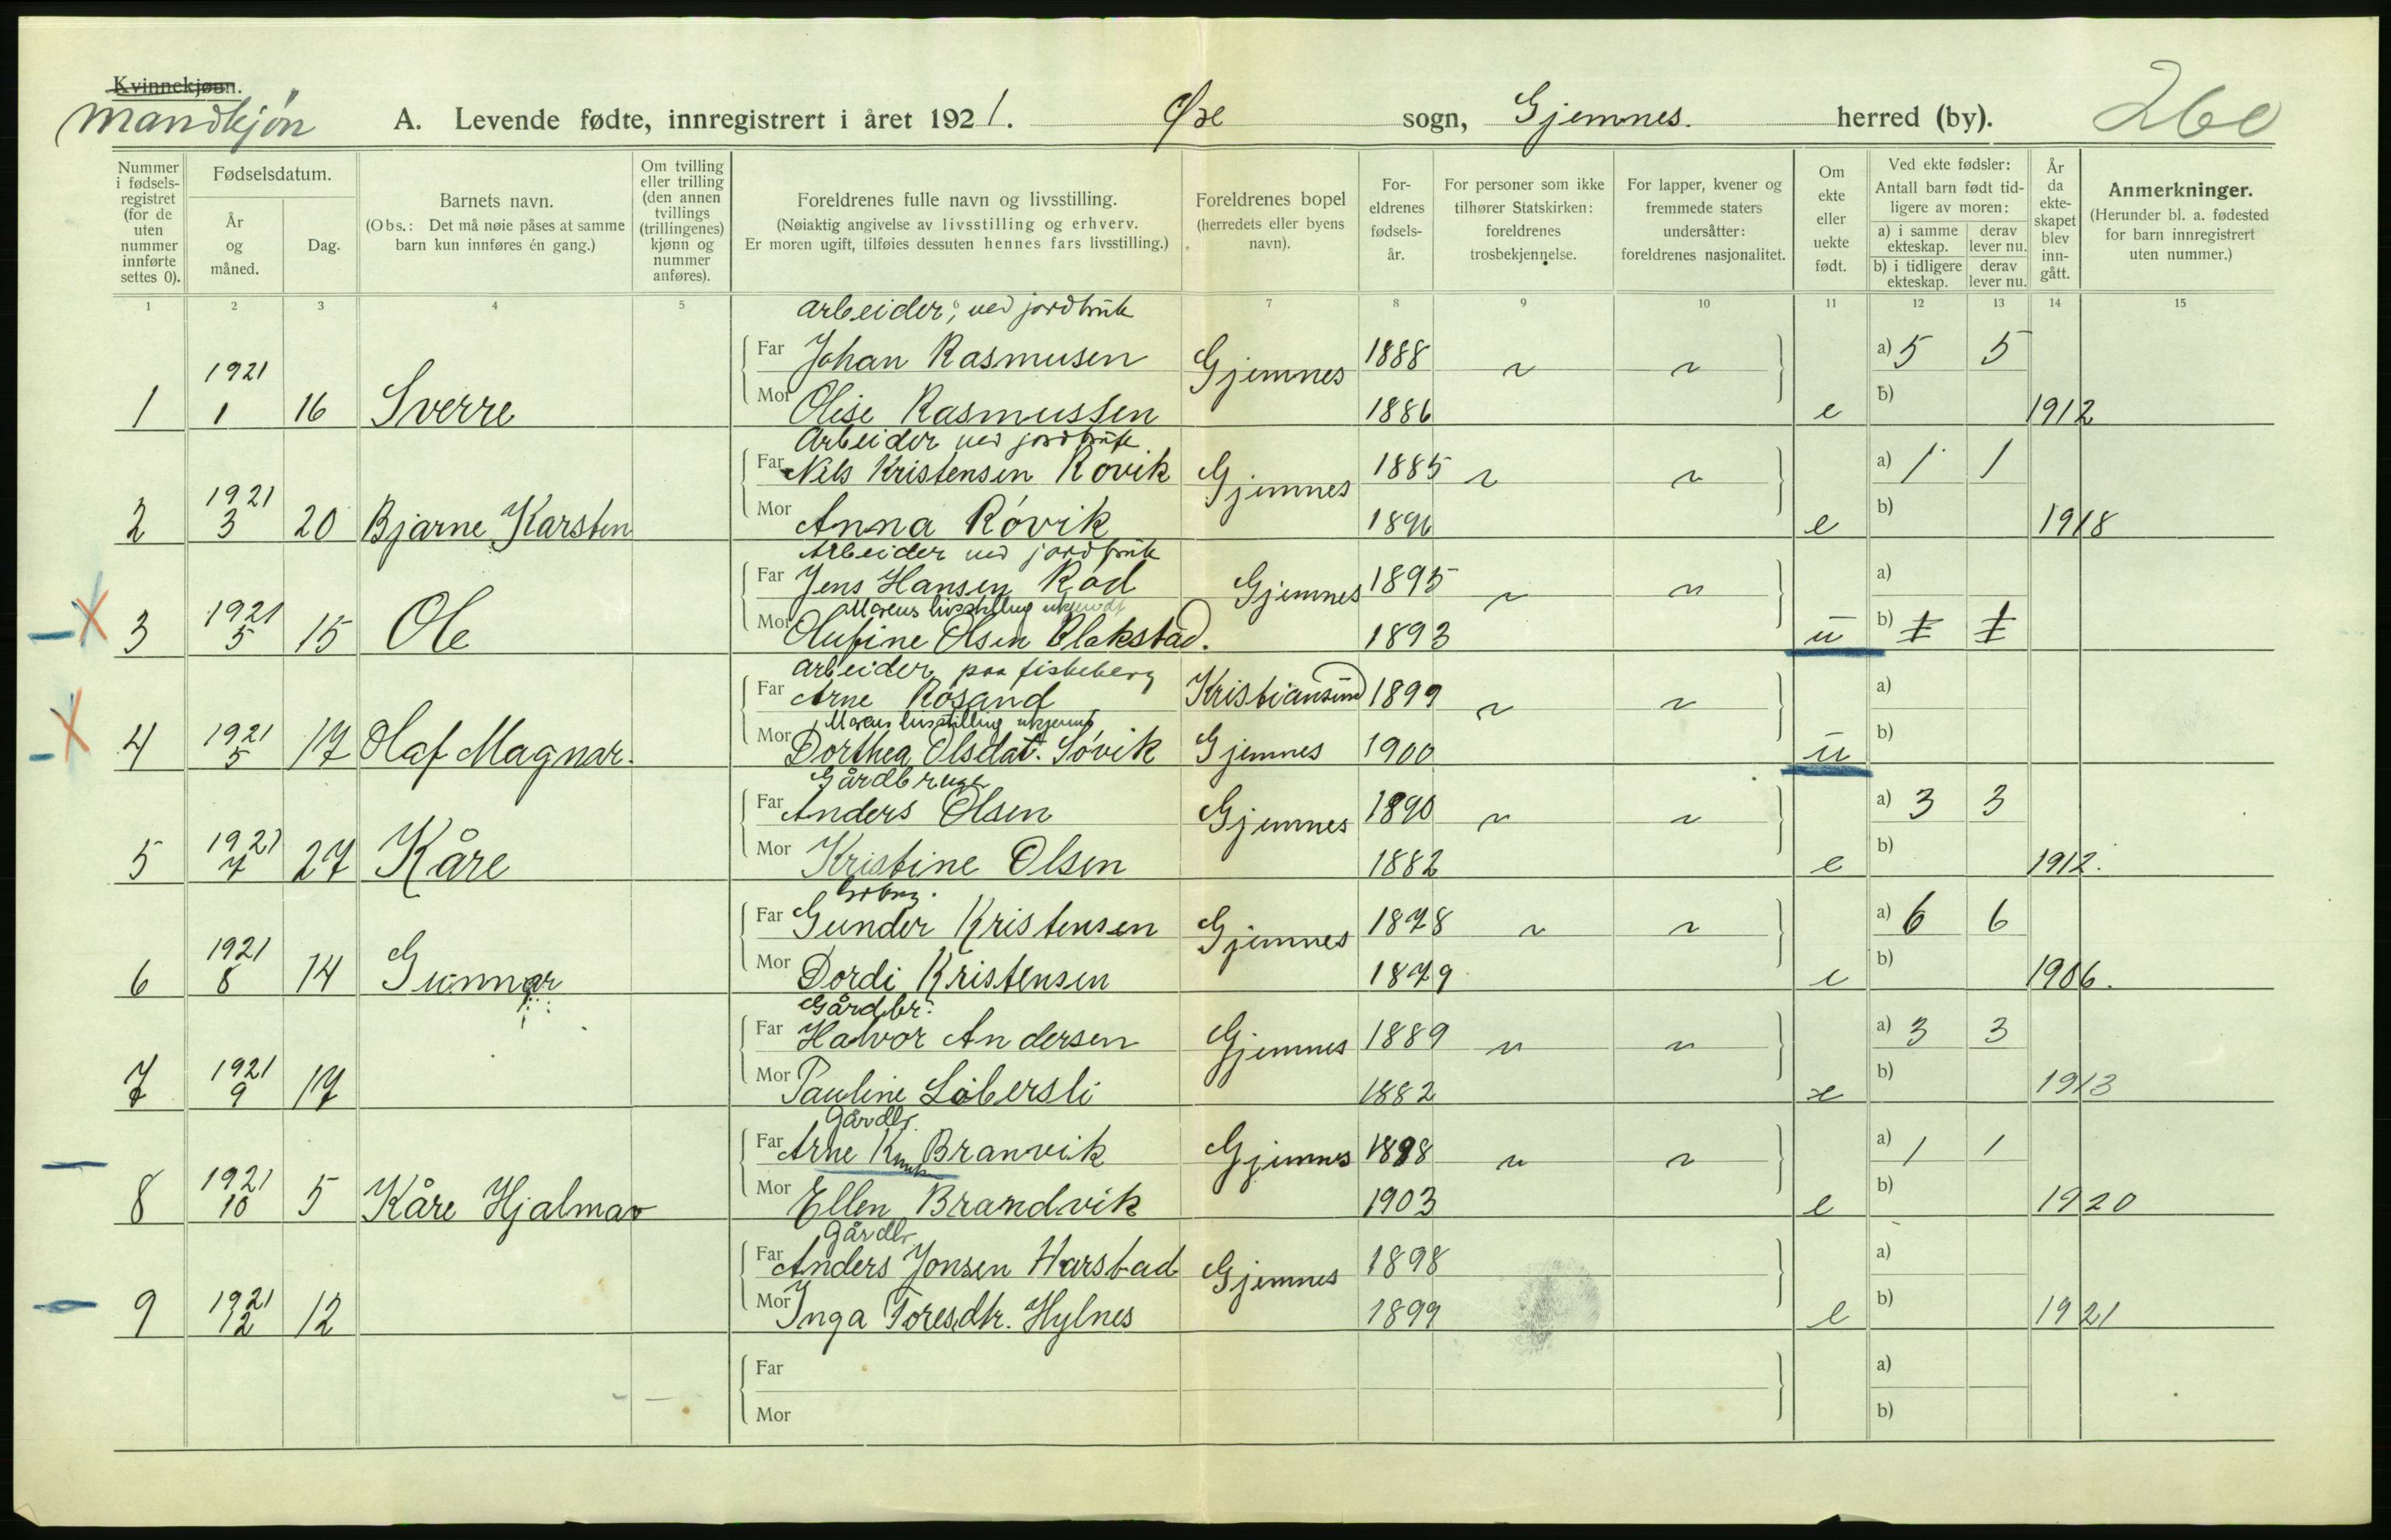 Kvinnekjønn.
Mandkjøn
A. Levende fødte, innregistrert i året 1921. Øre sogn, Gjemnes. herred (by). 260
Nummer i fødsels-registret (for de uten nummer innførte settes 0).
Fødselsdatum.
År og måned.
Dag.
Barnets navn.
(Obs.: Det må nøie påses at samme barn kun innføres én gang.)
Om tvilling eller trilling (den annen tvillings (trillingenes) kjønn og nummer anføres).
Foreldrenes fulle navn og livsstilling.
(Nøiaktig angivelse av livsstilling og erhverv.
Er moren ugift, tilføies dessuten hennes fars livsstilling.)
Foreldrenes bopel
(herredets eller byens navn).
For-eldrenes fødsels-år.
For personer som ikke tilhører Statskirken: foreldrenes trosbekjennelse.
For lapper, kvener og fremmede staters undersåtter: foreldrenes nasjonalitet.
Om ekte eller uekte født.
Ved ekte fødsler:
Antall barn født tid-ligere av moren:
a) i samme ekteskap. derav lever nu.
b) i tidligere ekteskap. derav lever nu.
År da ekte-skapet blev inn-gått.
Anmerkninger.
(Herunder bl. a. fødested for barn innregistrert uten nummer.)
1 2 3 4 5 6 7 8 9 10 11 12 13 14 15
arbeider, ved jordbruk
Far Johan Rasmusen Gjemnes 1888 a) 5 5
1 1921 1 16 Sverre Mor Olise Rasmussen 1886 e b) 1912
Arbeider ved jordbruk
Far Nils Kristensen Rovik Gjemnes 1885 a) 1 1
2 1921 3 20 Bjarne Karsten Mor Anna Róvik 1896 e b) 1918
Arbeider ved jordbruk
Far Jens Hansen Rød Gjemnes 1895 a)
Morens livsstilling ukjendt
3 1921 5 15 Ole Mor Olufine Olsen Blakstad. 1893 u b) 1 1
arbeider paa fiskeberg
Far Arne Rosand Kristiansund 1899 a)
Morens livsstilling ukjent
4 1921 5 17 Olaf Magnar. Mor Dorthea Olsdat. Sóvik Gjemnes 1900 u b)
Gårdbruger
Far Anders Olsen Gjemnes 1890 a) 3 3
5 1921 7 27 Kåre Mor Kristine Olsen 1882 e b) 1912.
Far Gunder Kristensen Gjemnes 1878 a) 6 6
6 1921 8 14 Gunnar Mor Dordi Kristensen 1879 e b) 1906.
Gårdbr.
Far Halvor Andersen Gjemnes 1889 a) 3 3
7 1921 9 17 Mor Pauline Løbersli 1882 e b) 1913
Gårdbr.
Far Arne Knuts Branvik Gjemnes 1898 a) 1 1
8 1921 10 5 Kåre Hjalmar Mor Ellen Brandvik 1903 e b) 1920
Gårdbr.
Far Anders Jonsen Harstad Gjemnes 1898 a)
9 1921 12 12 Mor Inga Toresdtr. Hylnes 1899 e b) 1921
Far a)
Mor b)